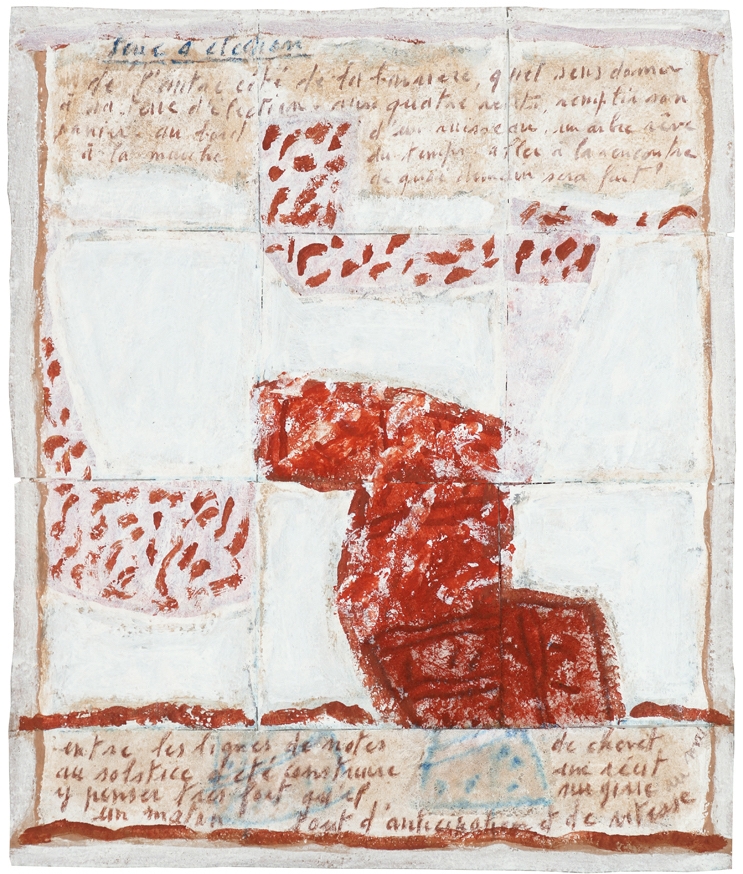 terre d'élection
de l'autre côté de la barrière, quel sens donner
à sa terre d'élection. aux quatre vents, remplir son
panier. au bord d'un ruisseau, un arbre rêve
à la du temps. aller à la rencontre
de quoi demain sera fait!
entre les lignes de notes de chevet
au solstice d'été construire un récit
y penser très fort qu'il surgisse
un matin tout d'anticipation et de vitesse